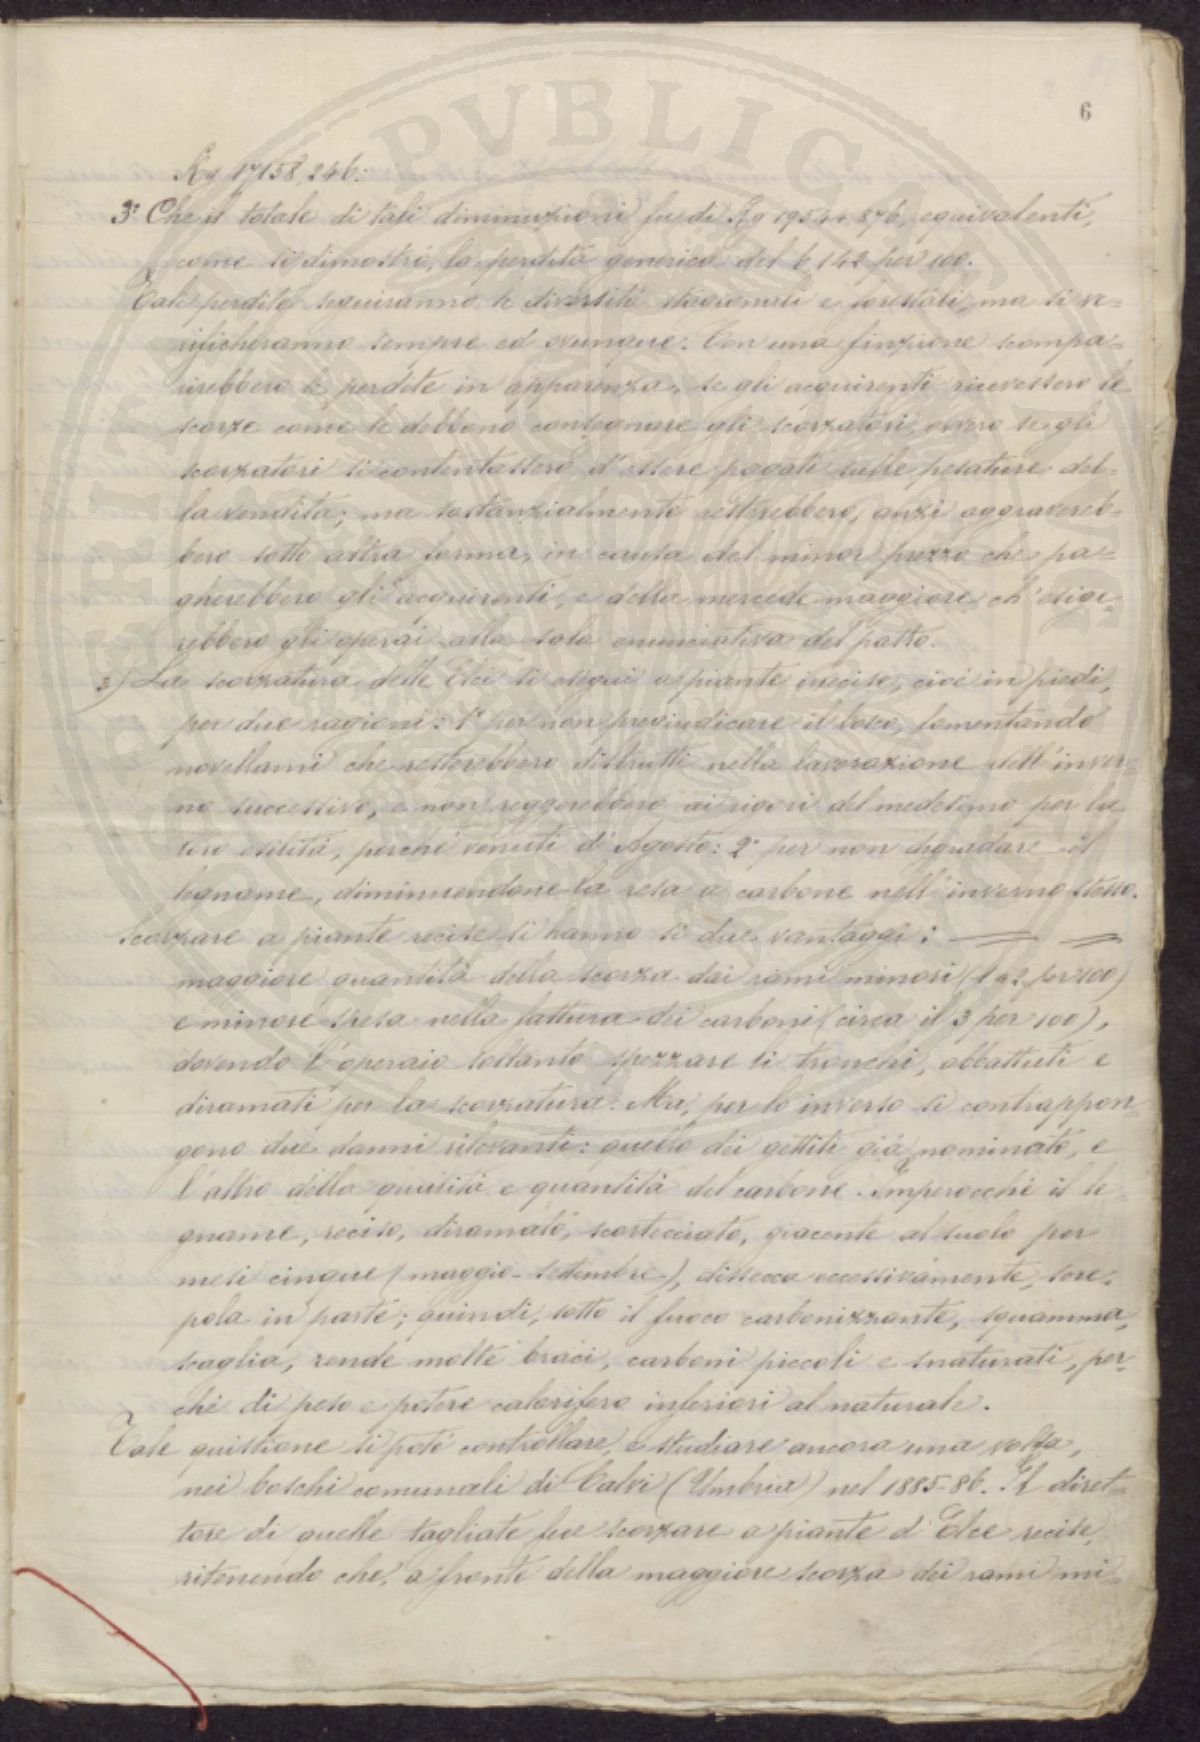 PUBLIC
6
Kg 17158,246:
3° Che il totale di tali diminuzioni fu di Kg 19544,876, equivalenti,
come si dimostrò, la perdita generica del 6,142 per 100.
Tali perdite seguiranno le diversità stagionali e forestali, ma si ve-
rificheranno sempre ed ovunque. Con una finzione scompa-
rirebbero le perdite in apparenza, se gli acquirenti ricevessero le
scorze come le debbono consegnare gli scorzatori, ovvero se gli
scorzatori si contentassero d'essere pagati sulle pesature del-
la vendita; ma sostanzialmente resterebbero, anzi aggravereb-
bero sotto altra forma, in causa del minor prezzo che pa-
gherebbero gli acquirenti, e della mercede maggiore ch'esige-
rebbero gli operai alla sola enunciativa del patto.
3) La scorzatura delle Elci si eseguì a piante irrecise, cioè in piedi,
per due ragioni: 1° per non pregiudicare il bosco, fomentando
novellami che resterebbero distrutti nella lavorazione dell'inver-
no successivo, e non reggerebbero ai rigori del medesimo per la
loro esilità, perché venuti d'Agosto: 2° per non degradare il
legname, diminuendone la resa a carbone nell'inverno stesso.
Scorzare a piante recise si hanno li due vantaggi:
maggiore quantità della scorza dai rami minori (1 a 2 per 100)
e minore spesa nella fattura dei carboni (circa il 3 per 100),
dovendo l'operaio soltanto spezzare li tronchi, abbattuti e
diramati per la scorzatura. Ma, per lo inverso si contrappon-
gono due danni rilevanti: quello dei gettiti già nominato, e
l'altro della qualità e quantità del carbone. Imperocché il le-
gname, reciso, diramato, scortecciato, giacente al suolo per
mesi cinque (maggio-settembre), dissecca eccessivamente, scre-
pola in parte; quindi, sotto il fuoco carbonizzante, squamma,
scaglia, rende molte braci, carboni piccoli e snaturati, per-
ché di peso e potere calorifero inferiori al naturale.
Tale quistione si poté controllare e studiare ancora una volta,
nei boschi comunali di Calvi (Umbria) nel 1885-86. Il diret-
tore di quelle tagliate fece scorzare a piante d'Elce recise,
ritenendo che, a fronte della maggiore scorza dei rami mi-